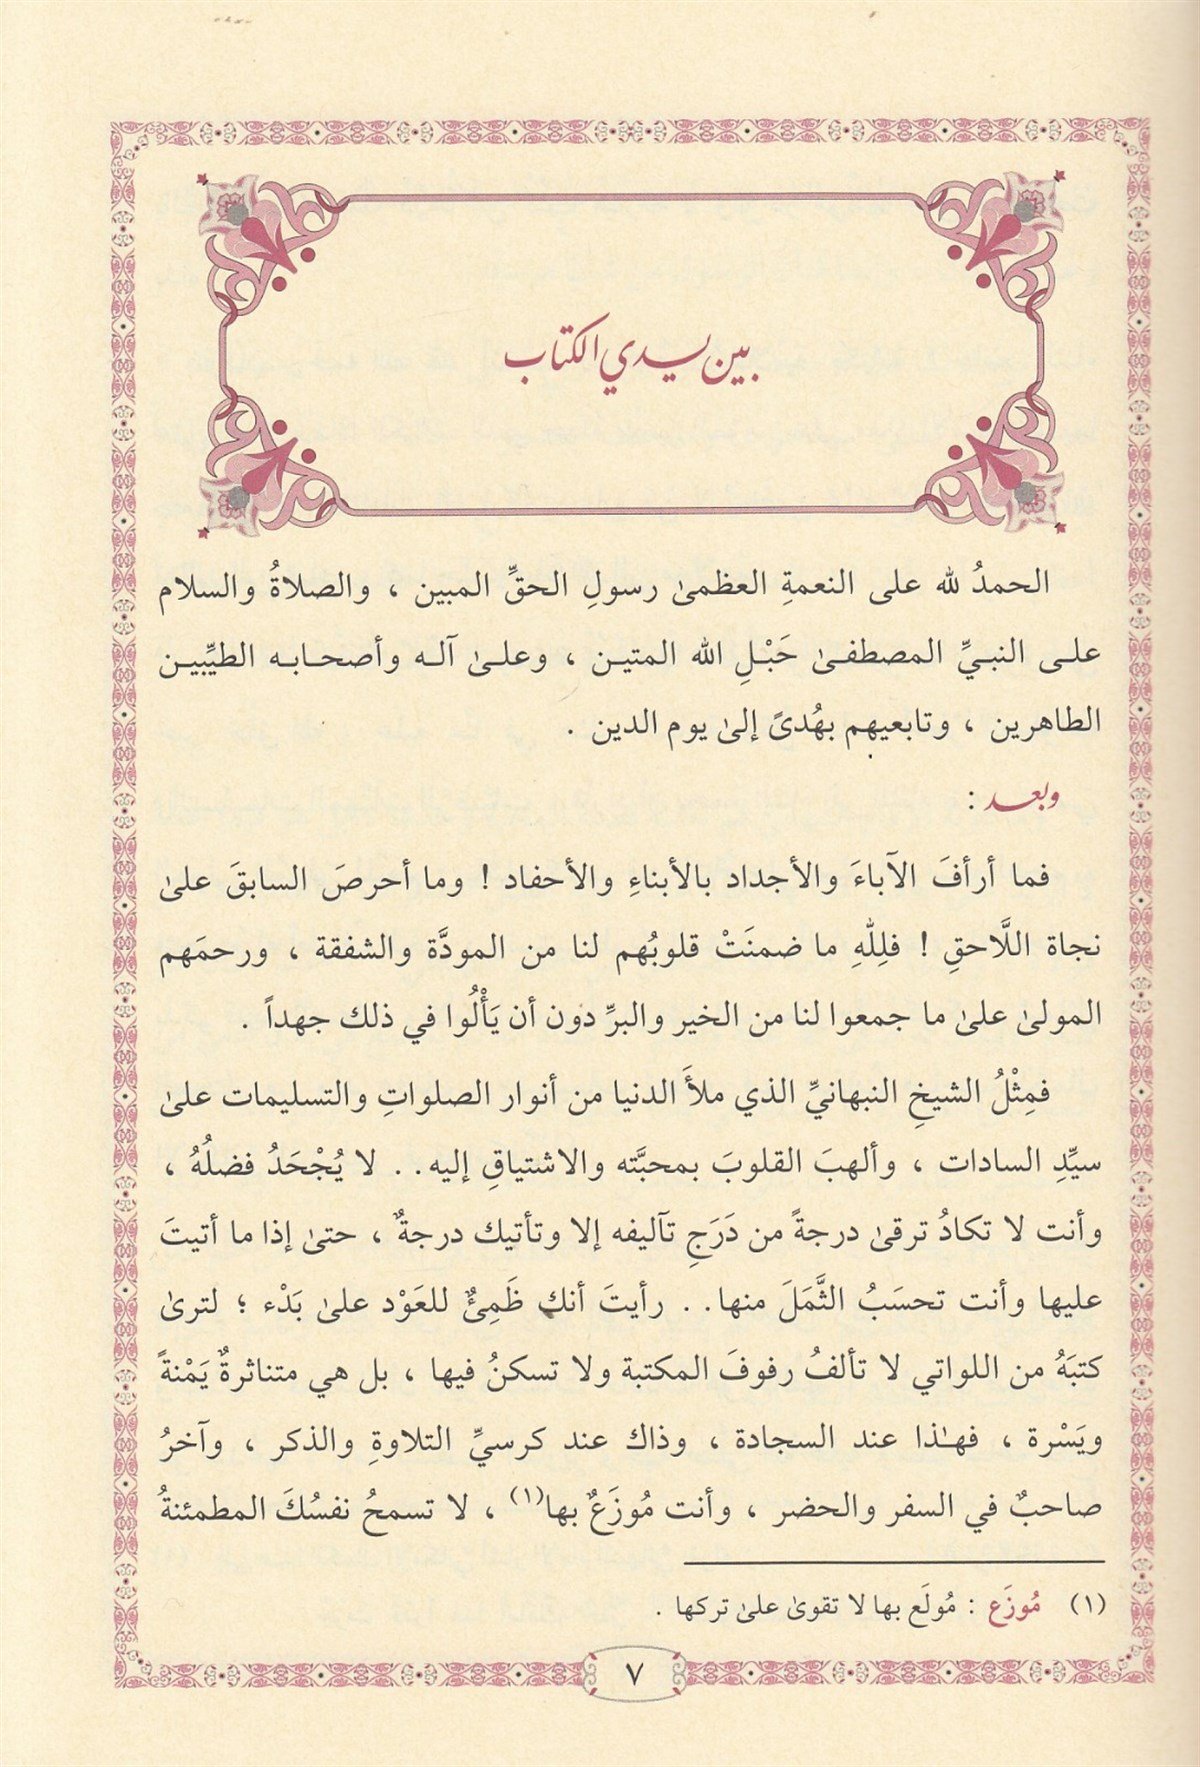 بين يدي الكتاب
الحمدُ لله على النعمةِ العظمىٰ رسولِ الحقِّ المبين ، والصلاةُ والسلام
علـى النبـيِّ المصطفـىٰ حَبْـلِ الله المتيـن ، وعلـىٰ آلـه وأصحـابـه الطيِّبيـن
الطاهرين ، وتابعيهم بهُدىً إلىٰ يوم الدين .
وبعد :
فما أرأفَ الآباءَ والأجداد بالأبناءِ والأحفاد ! وما أحرصَ السابقَ علىٰ
نجاة اللَّاحقِ ! فلِلّٰهِ ما ضمنَتْ قلوبُهم لنا من المودَّة والشفقة ، ورحمَهم
المولىٰ علىٰ ما جمعوا لنا من الخير والبرِّ دون أن يَأْلُوا في ذلك جهداً .
فمِثْلُ الشيخِ النبهانيِّ الذي ملأَ الدنيا من أنوار الصلواتِ والتسليمات علىٰ
سيِّدِ السادات ، وألهبَ القلوبَ بمحبَّته والاشتياقِ إليه.. لا يُجْحَدُ فضلُهُ ،
وأنت لا تكادُ ترقىٰ درجةً من دَرَجِ تآليفه إلا وتأتيك درجةٌ ، حتىٰ إذا ما أتيتَ
عليها وأنت تحسَبُ الثَّمَلَ منها.. رأيتَ أنك ظَمِئٌ للعَوْد علىٰ بَدْء ؛ لترىٰ
كتبَهُ من اللواتي لا تألفُ رفوفَ المكتبة ولا تسكنُ فيها ، بل هي متناثرةٌ يَمْنةً
ويَسْرة ، فهـٰذا عند السجادة ، وذاك عند كرسيِّ التلاوةِ والذكر ، وآخرُ
صاحبٌ في السفر والحضر ، وأنت مُوزَعٌ بها(١) ، لا تسمحُ نفسُكَ المطمئنةُ
(١) مُوزَع : مُولَع بها لا تقوىٰ علىٰ تركها .
٧